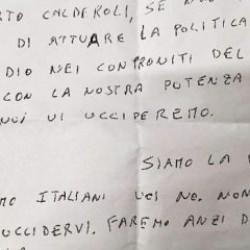 RTO CALDEROLI, SE NO
DI ATTUARE LA POLITICA
DIO NEI CONFRONTI DEL
CON LA NOSTRA POTENZA
NOI VI UCCIDEREMO.
SIAMO LA
MO ITALIANI VOI NO. NON
UCCIDERVI. FAREMO ANZI D